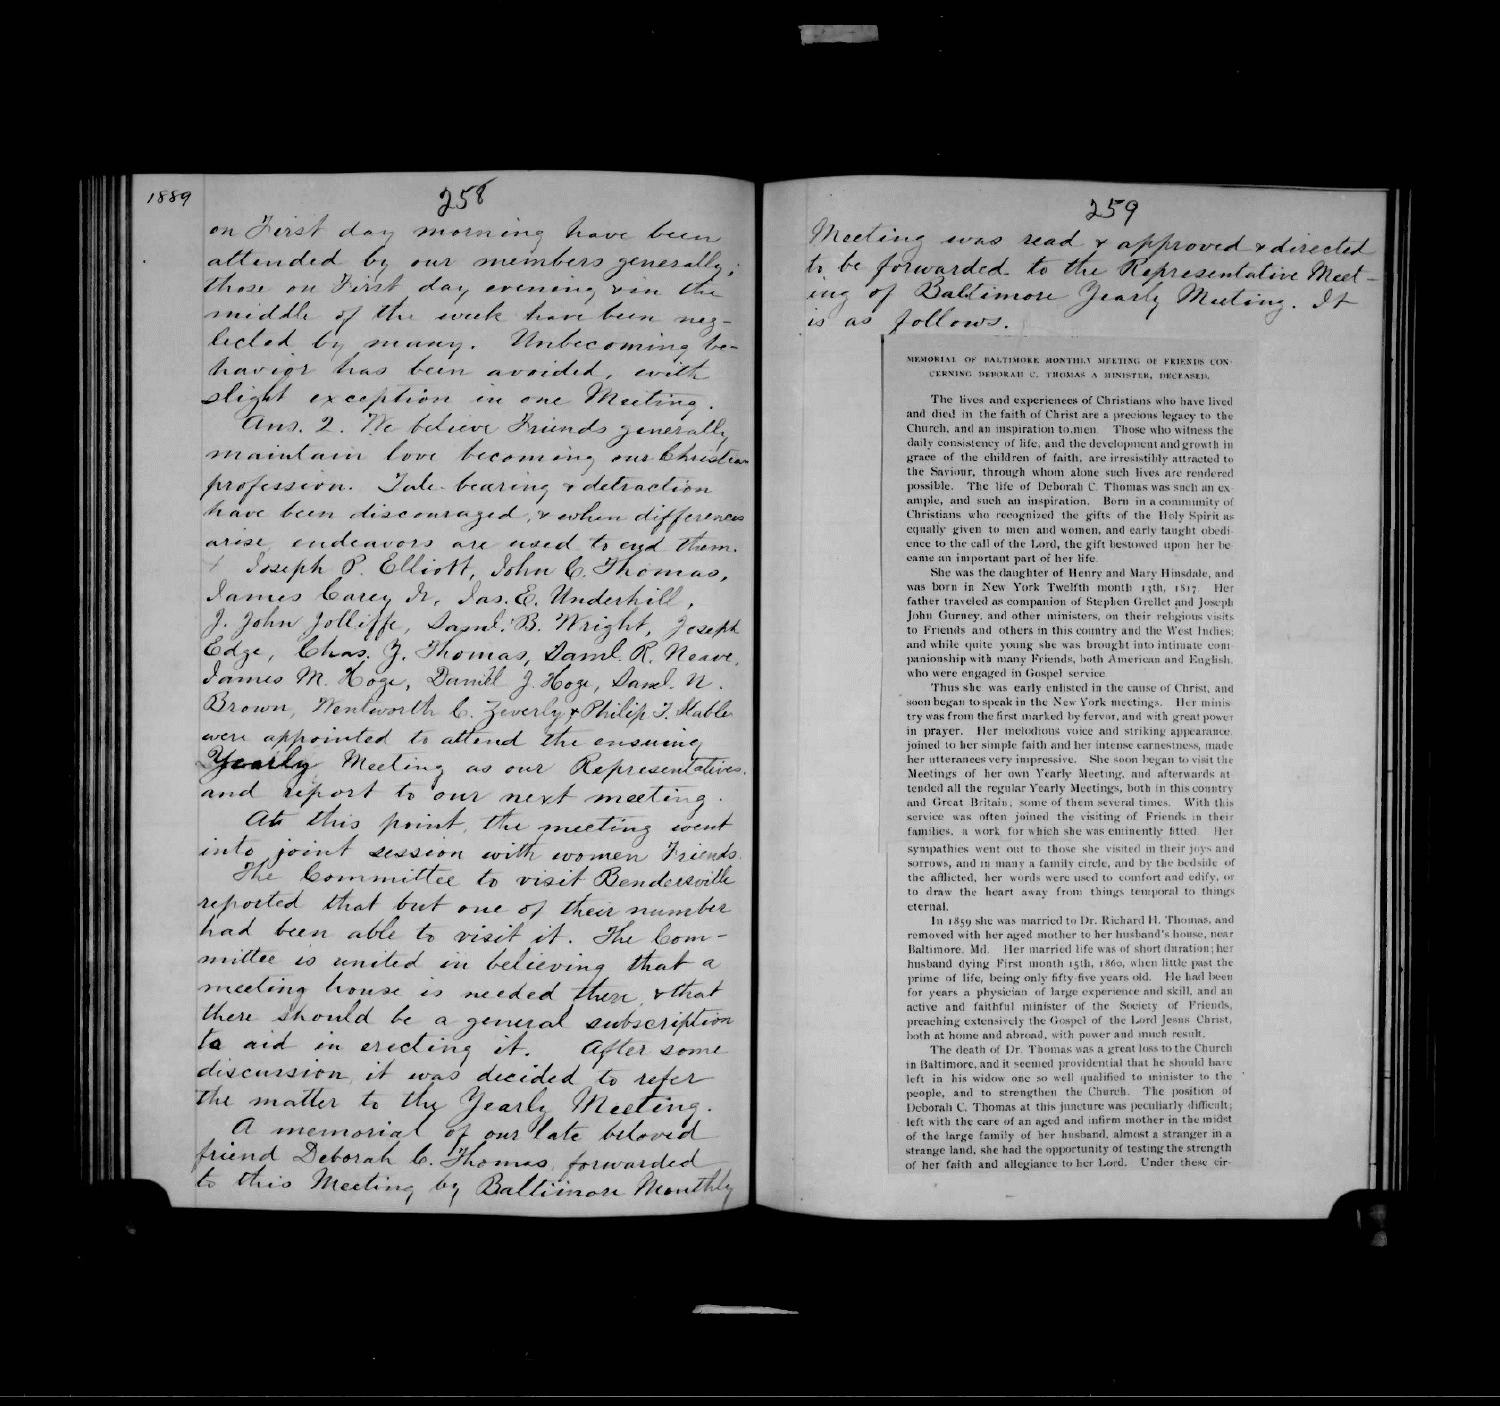 1889
258
on First day morning have been
attended by our members generally;
those on First day evening & in the
middle of the week have been neg-
lected by many. Unbecoming be-
havior has been avoided, with
slight exception in one Meeting.
Ans. 2. We believe Friends generally
maintain love becoming our Christian
profession. Tale-bearing & detraction
have been discouraged, & when differences
arise, endeavors are used to end them.
Joseph P. Elliott, John C. Thomas,
James Carey Jr, Jas. E. Underhill,
J. John Jolliffe, Saml. B. Wright, Joseph
Edge, Chas. Y. Thomas, Saml. R. Neave,
James M. Hoge, Daniel J. Hoge, Saml. N.
Brown, Wentworth C. Zeverly & Philip T. Stabler
were appointed to attend the ensuing
Yearly Meeting as our Representatives
and report to our next meeting.
At this point, the meeting went
into joint session with women Friends.
The Committee to visit Bendersville
reported that but one of their number
had been able to visit it. The Com-
mittee is united in believing that a
meeting house is needed there, & that
there should be a general subscription
to aid in erecting it. After some
discussion it was decided to refer
the matter to the Yearly Meeting.
A memorial of our late beloved
friend Deborah C. Thomas, forwarded
to this Meeting by Baltimore Monthly
259
Meeting was read & approved & directed
to be forwarded to the Representative Meet-
ing of Baltimore Yearly Meeting. It
is as follows.
MEMORIAL OF BALTIMORE MONTHLY MEETING OF FRIENDS CON-
CERNING DEBORAH C. THOMAS A MINISTER, DECEASED.
The lives and experiences of Christians who have lived
and died in the faith of Christ are a precious legacy to the
Church, and an inspiration to men. Those who witness the
daily consistency of life, and the development and growth in
grace of the children of faith, are irresistibly attracted to
the Saviour, through whom alone such lives are rendered
possible. The life of Deborah C. Thomas was such an ex-
ample, and such an inspiration. Born in a community of
Christians who recognized the gifts of the Holy Spirit as
equally given to men and women, and early taught obedi-
ence to the call of the Lord, the gift bestowed upon her be-
came an important part of her life.
She was the daughter of Henry and Mary Hinsdale, and
was born in New York Twelfth month 13th, 1817. Her
father traveled as companion of Stephen Grellet and Joseph
John Gurney, and other ministers, on their religious visits
to Friends and others in this country and the West Indies;
and while quite young she was brought into intimate com-
panionship with many Friends, both American and English,
who were engaged in Gospel service.
Thus she was early enlisted in the cause of Christ, and
soon began to speak in the New York meetings. Her minis-
try was from the first marked by fervor, and with great power
in prayer. Her melodious voice and striking appearance,
joined to her simple faith and her intense earnestness, made
her utterances very impressive. She soon began to visit the
Meetings of her own Yearly Meeting, and afterwards at-
tended all the regular Yearly Meetings, both in this country
and Great Britain; some of them several times. With this
service was often joined the visiting of Friends in their
families, a work for which she was eminently fitted. Her
sympathies went out to those she visited in their joys and
sorrows, and in many a family circle, and by the bedside of
the afflicted, her words were used to comfort and edify, or
to draw the heart away from things temporal to things
eternal.
In 1859 she was married to Dr. Richard H. Thomas, and
removed with her aged mother to her husband's house, near
Baltimore, Md. Her married life was of short duration; her
husband dying First month 15th, 1860, when little past the
prime of life, being only fifty-five years old. He had been
for years a physician of large experience and skill, and an
active and faithful minister of the Society of Friends,
preaching extensively the Gospel of the Lord Jesus Christ,
both at home and abroad, with power and much result.
The death of Dr. Thomas was a great loss to the Church
in Baltimore, and it seemed providential that he should have
left in his widow one so well qualified to minister to the
people, and to strengthen the Church. The position of
Deborah C. Thomas at this juncture was peculiarly difficult;
left with the care of an aged and infirm mother in the midst
of the large family of her husband, almost a stranger in a
strange land, she had the opportunity of testing the strength
of her faith and allegiance to her Lord. Under these cir-